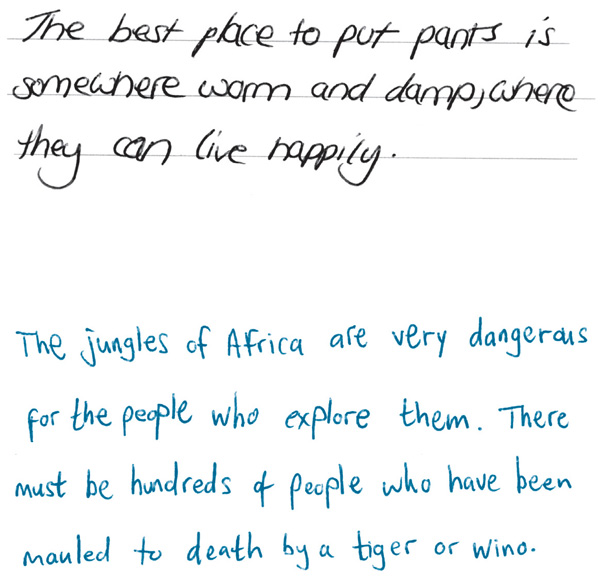 The best place to put pants is
somewhere warm and damp, where
they can live happily.
The jungles of Africa are very dangerous
for the people who explore them. There
must be hundreds of people who have been
mauled to death by a tiger or wino.